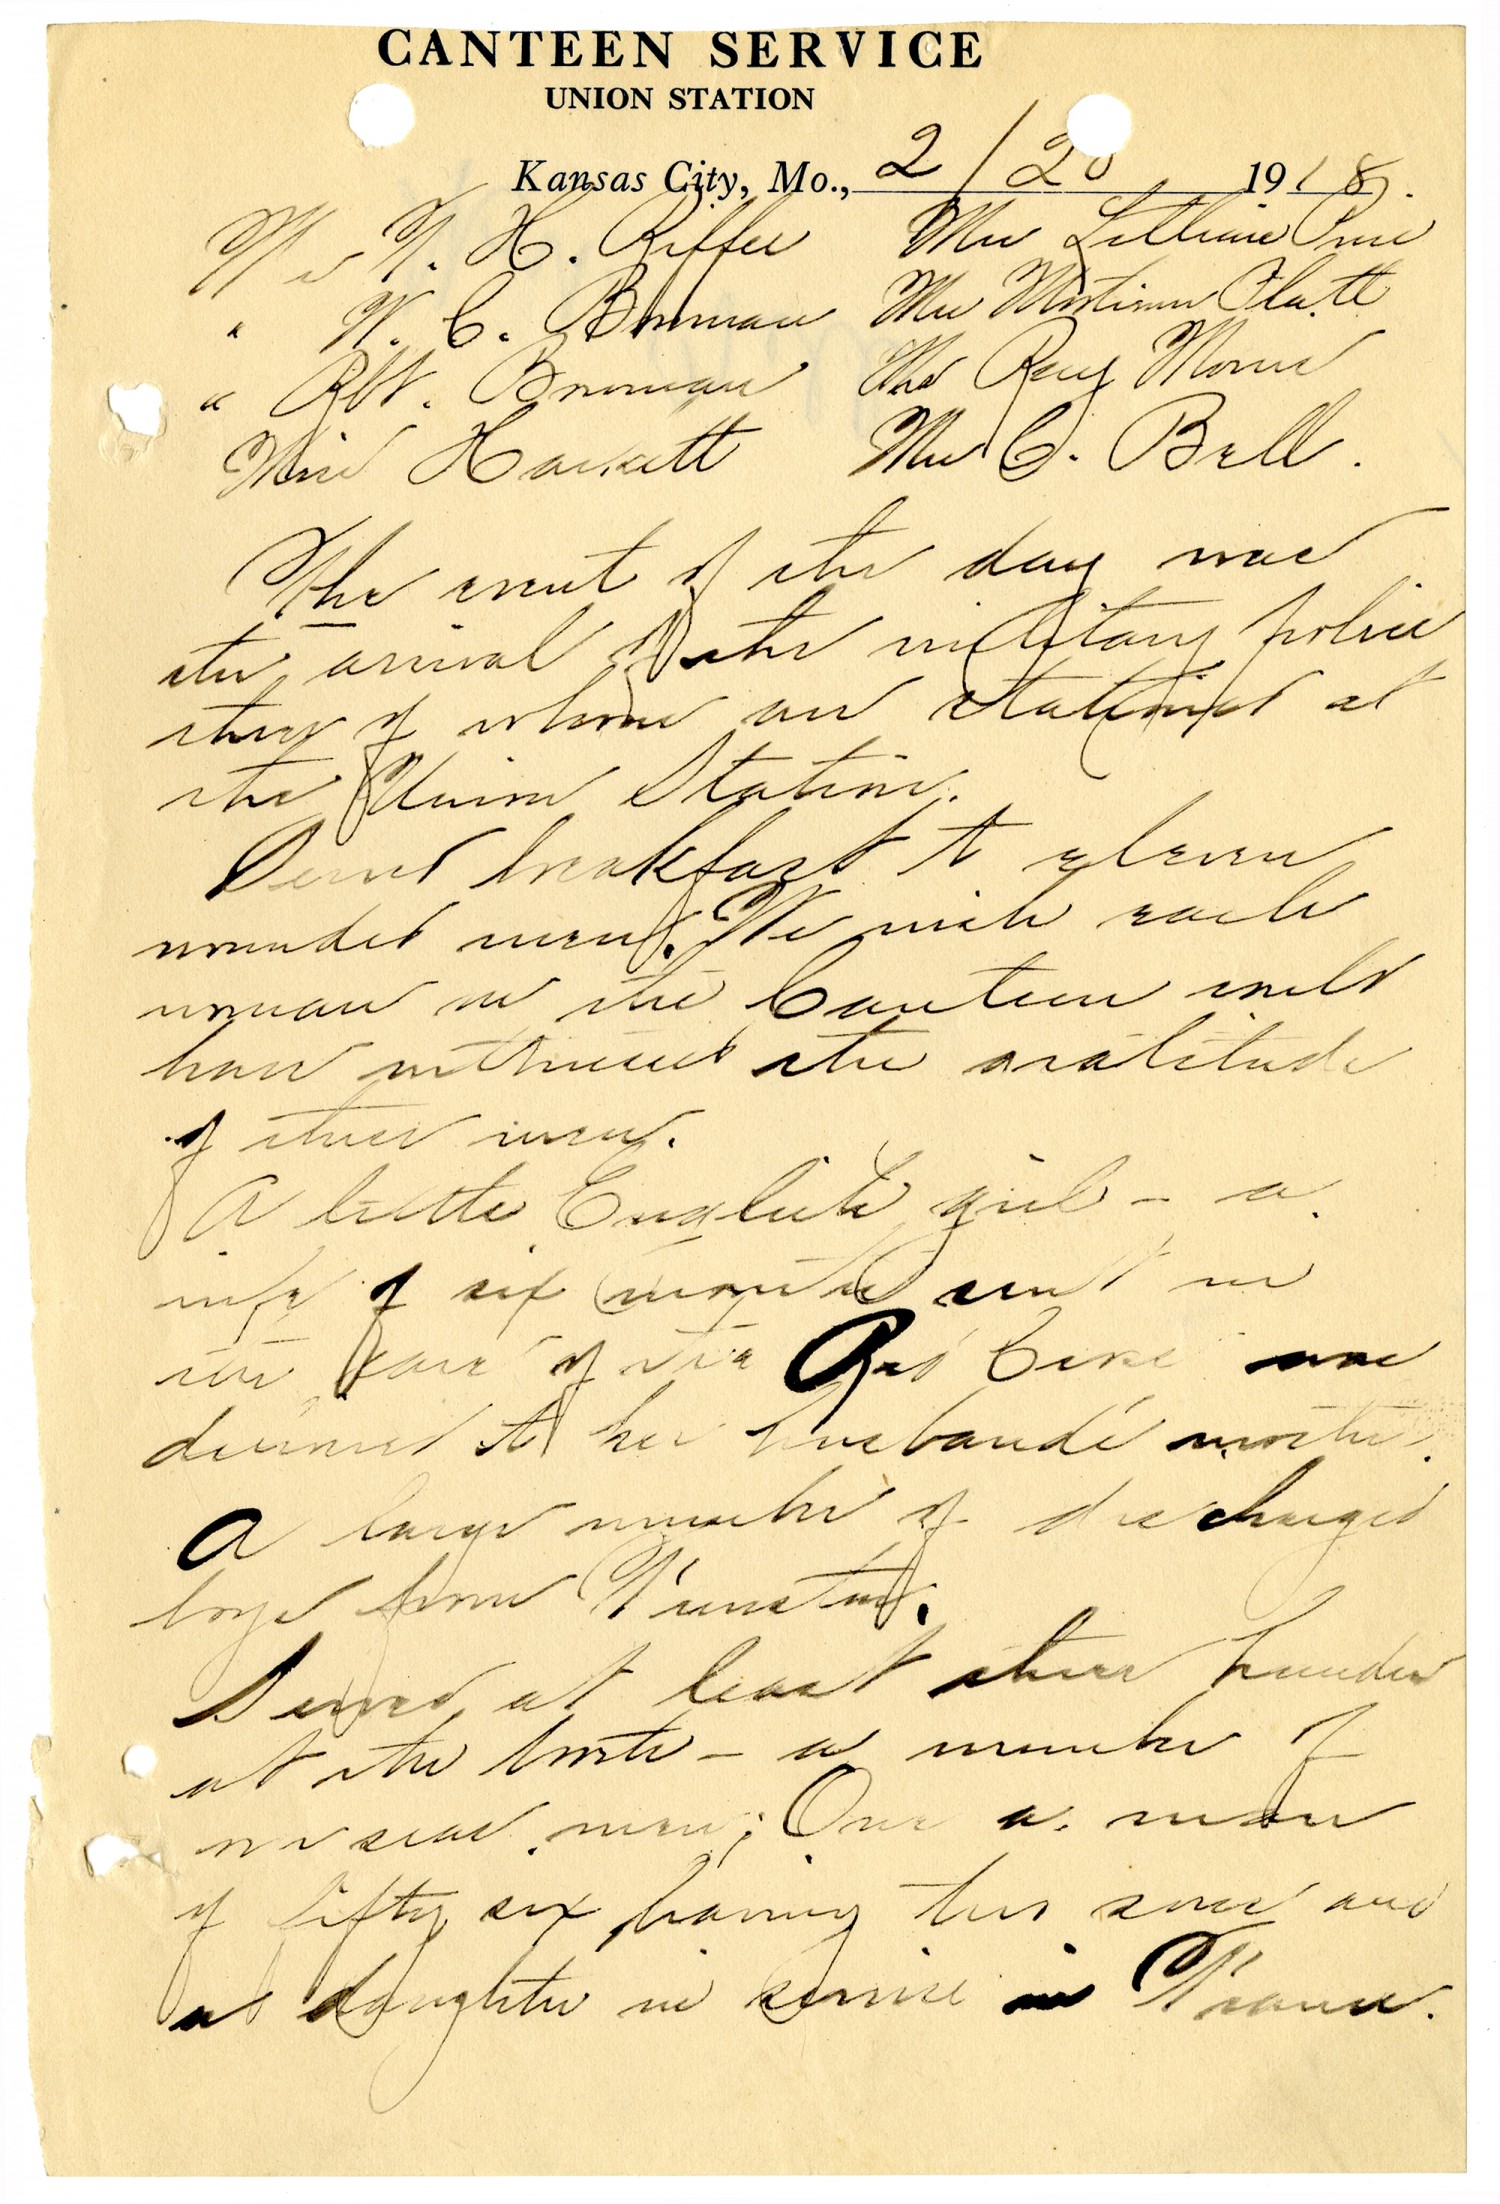 CANTEEN SERVICE
UNION STATION
Kansas City, Mo., 2/20 1918.
Mrs. H. Riffer Mrs Lillian
" W. C. Bowman Mrs Mortimer Platt
" Robt. Bowman Mrs Ray Morris
Miss Hackett Mrs C. Bell.
The event of the day was
the arrival of the military police
three of whom are stationed at
the Union Station.
Served breakfast to eleven
wounded men. We wish each
woman in the Canteen could
have witnessed the gratitude
of these men.
A little English girl - a
wife of six months sent in
the care of the Red Cross was
directed to her husband's mother.
A large number of discharged
boys from Funston.
Served at least three hundred
at the booth - a number of
overseas men; One a man
of fifty six having two sons and
a daughter in service in France.